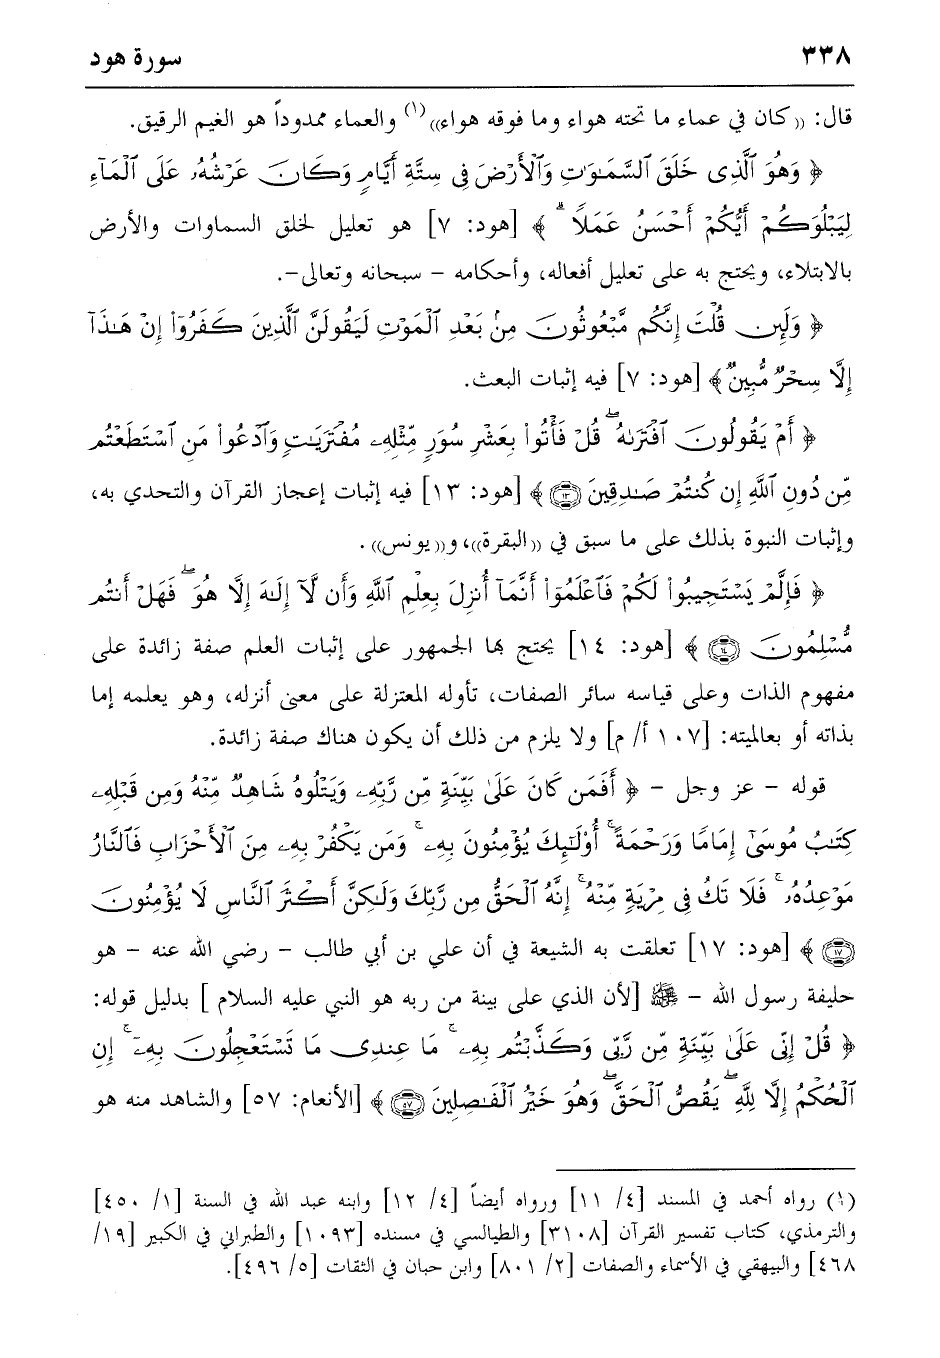 ٣٣٨ سورة هود
قال: ((كان في عماء ما تحته هواء وما فوقه هواء))(١) والعماء ممدوداً هو الغيم الرقيق.
﴿ وَهُوَ ٱلَّذِى خَلَقَ ٱلسَّمَـٰوَٰتِ وَٱلْأَرْضَ فِى سِتَّةِ أَيَّامٍ وَكَانَ عَرْشُهُۥ عَلَى ٱلْمَآءِ
لِيَبْلُوَكُمْ أَيُّكُمْ أَحْسَنُ عَمَلًا ۗ ﴾ [هود: ٧] هو تعليل لخلق السماوات والأرض
بالابتلاء، ويحتج به على تعليل أفعاله، وأحكامه - سبحانه وتعالى-.
﴿ وَلَئِن قُلْتَ إِنَّكُم مَّبْعُوثُونَ مِنۢ بَعْدِ ٱلْمَوْتِ لَيَقُولَنَّ ٱلَّذِينَ كَفَرُوٓا۟ إِنْ هَـٰذَآ
إِلَّا سِحْرٌ مُّبِينٌ ﴾ [هود: ٧] فيه إثبات البعث.
﴿ أَمْ يَقُولُونَ ٱفْتَرَىٰهُ ۖ قُلْ فَأْتُوا۟ بِعَشْرِ سُوَرٍ مِّثْلِهِۦ مُفْتَرَيَـٰتٍ وَٱدْعُوا۟ مَنِ ٱسْتَطَعْتُم
مِّن دُونِ ٱللَّهِ إِن كُنتُمْ صَـٰدِقِينَ ﴿١٣﴾ ﴾ [هود: ١٣] فيه إثبات إعجاز القرآن والتحدي به،
وإثبات النبوة بذلك على ما سبق في ((البقرة))، و((يونس)).
﴿ فَإِلَّمْ يَسْتَجِيبُوا۟ لَكُمْ فَٱعْلَمُوٓا۟ أَنَّمَآ أُنزِلَ بِعِلْمِ ٱللَّهِ وَأَن لَّآ إِلَـٰهَ إِلَّا هُوَ ۖ فَهَلْ أَنتُم
مُّسْلِمُونَ ﴿١٤﴾ ﴾ [هود: ١٤] يحتج بها الجمهور على إثبات العلم صفة زائدة على
مفهوم الذات وعلى قياسه سائر الصفات، تأوله المعتزلة على معنى أنزله، وهو يعلمه إما
بذاته أو بعالميته: [١٠٧ أ/ م] ولا يلزم من ذلك أن يكون هناك صفة زائدة.
قوله - عز وجل - ﴿ أَفَمَن كَانَ عَلَىٰ بَيِّنَةٍ مِّن رَّبِّهِۦ وَيَتْلُوهُ شَاهِدٌ مِّنْهُ وَمِن قَبْلِهِۦ
كِتَـٰبُ مُوسَىٰٓ إِمَامًا وَرَحْمَةً ۚ أُو۟لَـٰٓئِكَ يُؤْمِنُونَ بِهِۦ ۚ وَمَن يَكْفُرْ بِهِۦ مِنَ ٱلْأَحْزَابِ فَٱلنَّارُ
مَوْعِدُهُۥ ۚ فَلَا تَكُ فِى مِرْيَةٍ مِّنْهُ ۚ إِنَّهُ ٱلْحَقُّ مِن رَّبِّكَ وَلَـٰكِنَّ أَكْثَرَ ٱلنَّاسِ لَا يُؤْمِنُونَ
﴿١٧﴾ ﴾ [هود: ١٧] تعلقت به الشيعة في أن علي بن أبي طالب - رضي الله عنه - هو
خليفة رسول الله - ﷺ [لأن الذي على بينة من ربه هو النبي عليه السلام ] بدليل قوله:
﴿ قُلْ إِنِّى عَلَىٰ بَيِّنَةٍ مِّن رَّبِّى وَكَذَّبْتُم بِهِۦ ۚ مَا عِندِى مَا تَسْتَعْجِلُونَ بِهِۦٓ ۚ إِنِ
ٱلْحُكْمُ إِلَّا لِلَّهِ ۖ يَقُصُّ ٱلْحَقَّ ۖ وَهُوَ خَيْرُ ٱلْفَـٰصِلِينَ ﴿٥٧﴾ ﴾ [الأنعام: ٥٧] والشاهد منه هو
(١) رواه أحمد في المسند [٤/ ١١] ورواه أيضاً [٤/ ١٢] وابنه عبد الله في السنة [١/ ٤٥٠]
والترمذي، كتاب تفسير القرآن [٣١٠٨] والطيالسي في مسنده [١٠٩٣] والطبراني في الكبير [١٩/
٤٦٨] والبيهقي في الأسماء والصفات [٢/ ٨٠١] وابن حبان في الثقات [٥/ ٤٩٦].